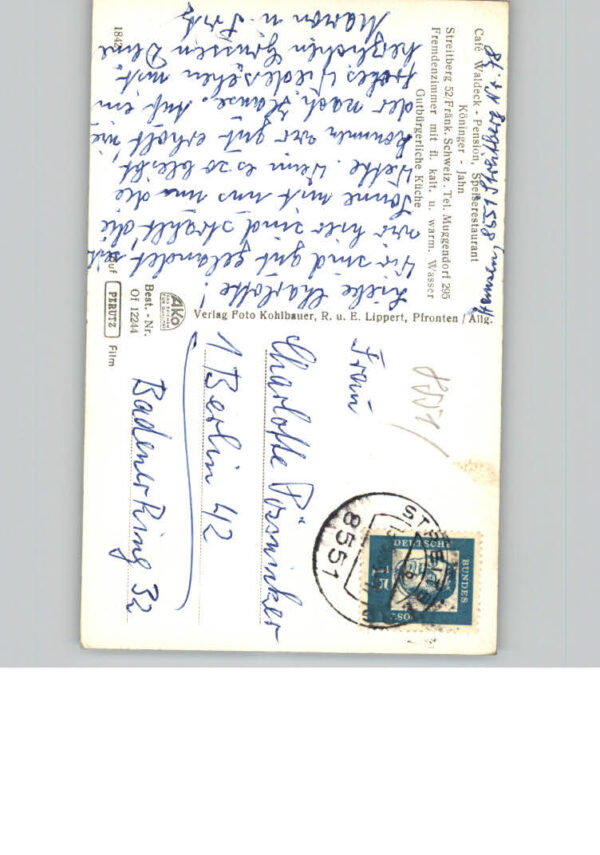 Café Waldeck - Pension, Speiserestaurant
Köninger - Jahn
Streitberg 52/Fränk. Schweiz. Tel. Muggendorf 295
Fremdenzimmer mit fl. kalt. u. warm. Wasser
Gutbürgerliche Küche
Liebe Charlotte!
Wir sind gut gelandet seit
wir hier sind strahlt die
Sonne mit uns um die
Wette. Wenn es so bleibt
kommen wir gut erholt
der nach Hause. Auf ein
frohes Wiedersehen mit
herzlichen Grüssen Deine
u. Fritz
1842
Verlag Foto Kohlbauer, R. u. E. Lippert, Pfronten / Allg.
Ako
Best.-Nr.
Of 12244
Auf
PERUTZ
Film
8551
Frau
Charlotte
1 Berlin 42
Badener Ring 32
8551
DEUTSCHE
BUNDES
POST